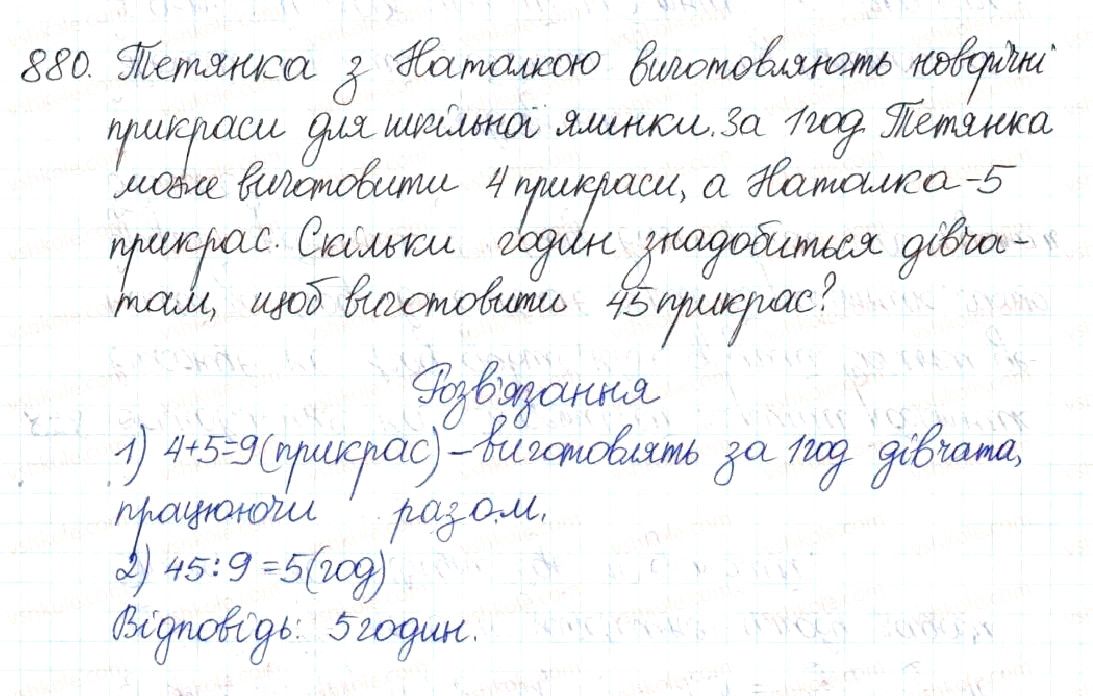 880. Тетянка з Наталкою виготовляють новорічні
прикраси для шкільної ялинки. За 1 год Тетянка
може виготовити 4 прикраси, а Наталка - 5
прикрас. Скільки годин знадобиться дівча-
там, щоб виготовити 45 прикрас?
Розв'язання
1) 4+5=9 (прикрас) - виготовлять за 1 год дівчата,
працюючи разом.
2) 45:9=5 (год)
Відповідь: 5 годин.